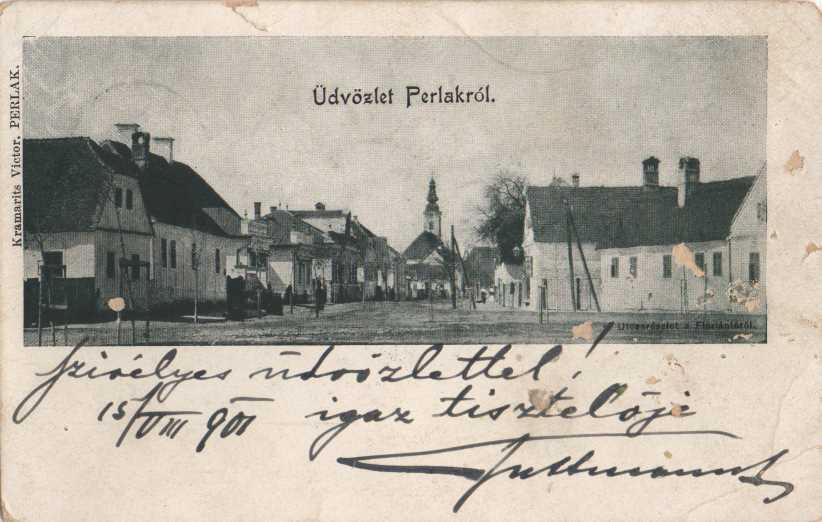 Üdvözlet Perlakról.
Kramarits Victor, PERLAK.
Utczarészlet a Flóriántéről.
Szívélyes üdvözlettel!
15/VIII 901 igaz tisztelője